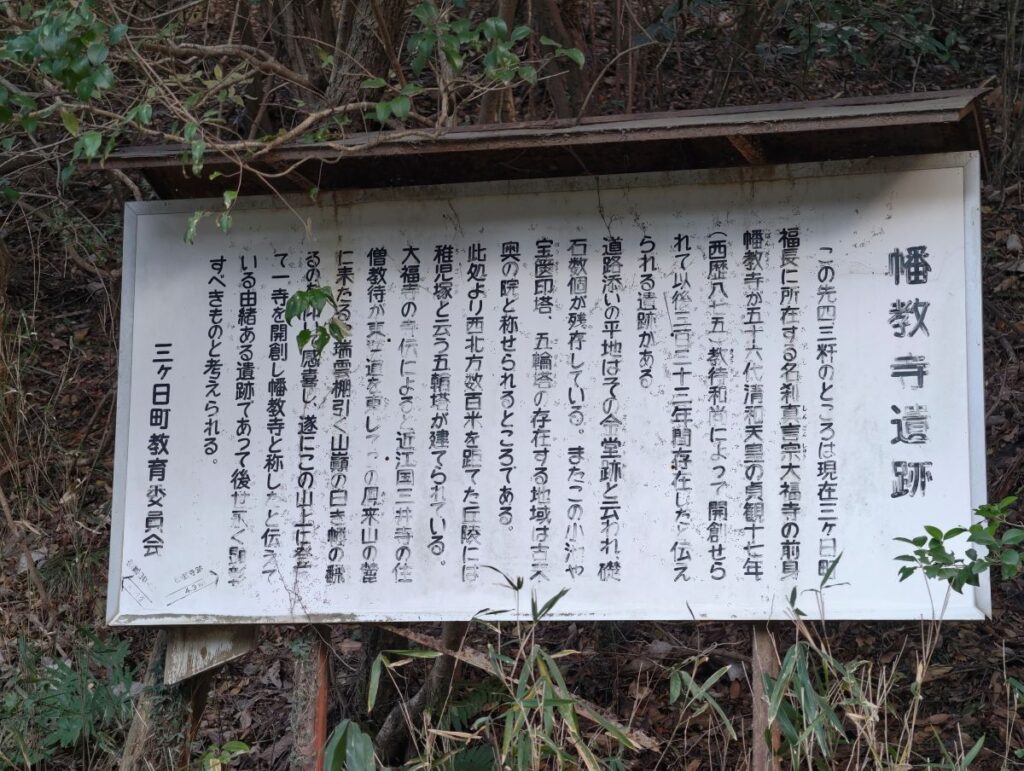 幡教寺遺跡
この先四三粁のところは現在三ヶ日町
福長に所在する名刹真言宗大福寺の前身
幡教寺が五十六代清和天皇の貞観十七年
(西歴八七五)教待和尚によって開創せら
れて以後三百三十三年間存在したと伝え
られる遺跡がある
道路添いの平地はその金堂跡と云われ、礎
石数個が残存している。またこの小池や
宝医印塔、五輪塔の存在する地域は古来
奥の院と称せられるところである。
此処より西北方数百米を距てた丘陵には
稚児塚と云う五輪塔が建てられている。
大福寺の寺伝によると近江国三井寺の住
僧教待が東海道を東して の扇来山の麓
に来たる、瑞雲棚引く山巓の白き幡の飜
るのを仰いで感喜し、遂にこの山上に登
て一寺を開創し幡教寺と称したと伝えて
いる由緒ある遺跡であって後世永く
すべきものと考えられる。
三ヶ日町教育委員会